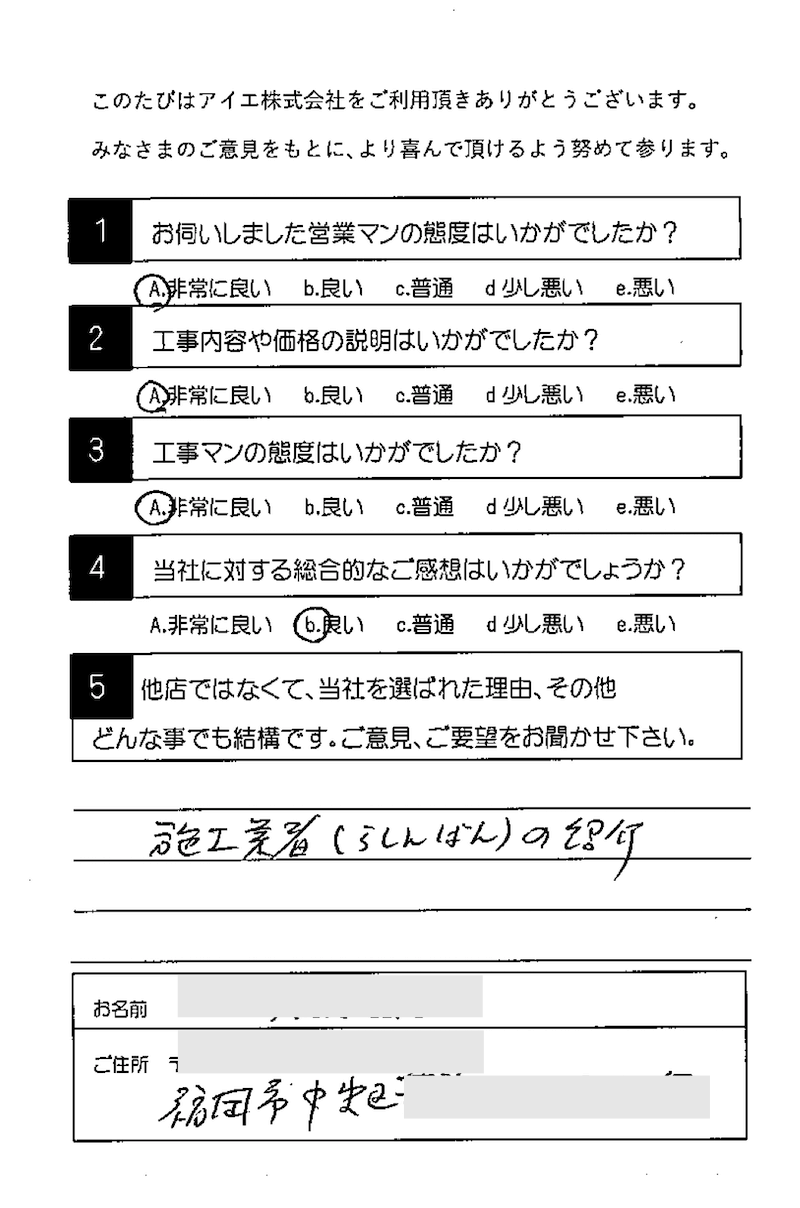 このたびはアイエ株式会社をご利用頂きありがとうございます。
みなさまのご意見をもとに、より喜んで頂けるよう努めて参ります。
1 お伺いしました営業マンの態度はいかがでしたか？
A.非常に良い b.良い c.普通 d少し悪い e.悪い
2 工事内容や価格の説明はいかがでしたか？
A.非常に良い b.良い c.普通 d少し悪い e.悪い
3 工事マンの態度はいかがでしたか？
A.非常に良い b.良い c.普通 d少し悪い e.悪い
4 当社に対する総合的なご感想はいかがでしょうか？
A.非常に良い b.良い c.普通 d少し悪い e.悪い
5 他店ではなくて、当社を選ばれた理由、その他
どんな事でも結構です。ご意見、ご要望をお聞かせ下さい。
施工業者(らしんばん)の紹介
お名前
ご住所
福岡市中央区